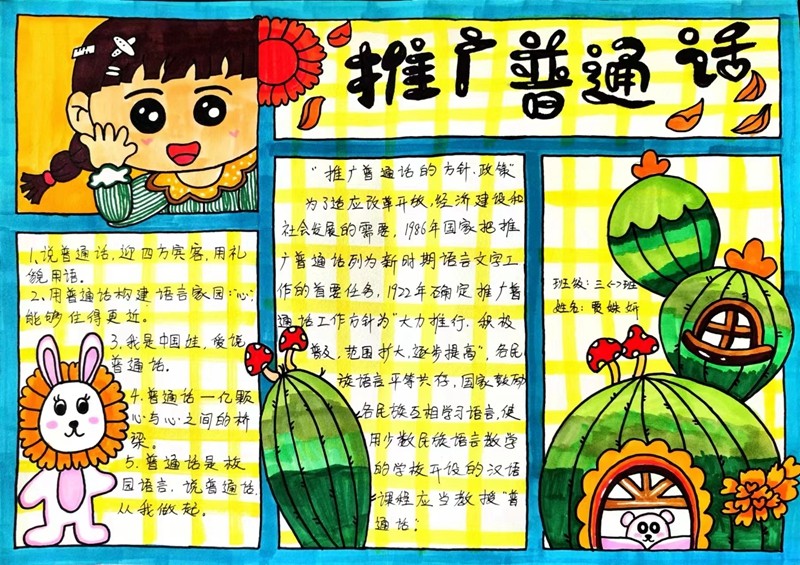 推广普通话
1.说普通话,迎四方宾客,用礼
貌用语。
2.用普通话构建语言家园:"心"
能够住得更近。
3.我是中国娃,爱说
普通话。
4.普通话一亿颗
心与心之间的桥
梁。
5.普通话是校
园语言,说普通话,
从我做起。
"推广普通话的方针、政策"
为了适应改革开放,经济建设和
社会发展的需要,1986年国家把推
广普通话列为新时期语言文字工
作的首要任务,1922年确定推广普
通话工作方针为"大力推行、积极
普及,范围扩大,逐步提高",各民
族语言平等共存,国家鼓励
各民族互相学习语言,使
用少数民族语言教学
的学校开设的汉语
课程应当教授"普
通话:
班级:三<>班
姓名:贾姝妍